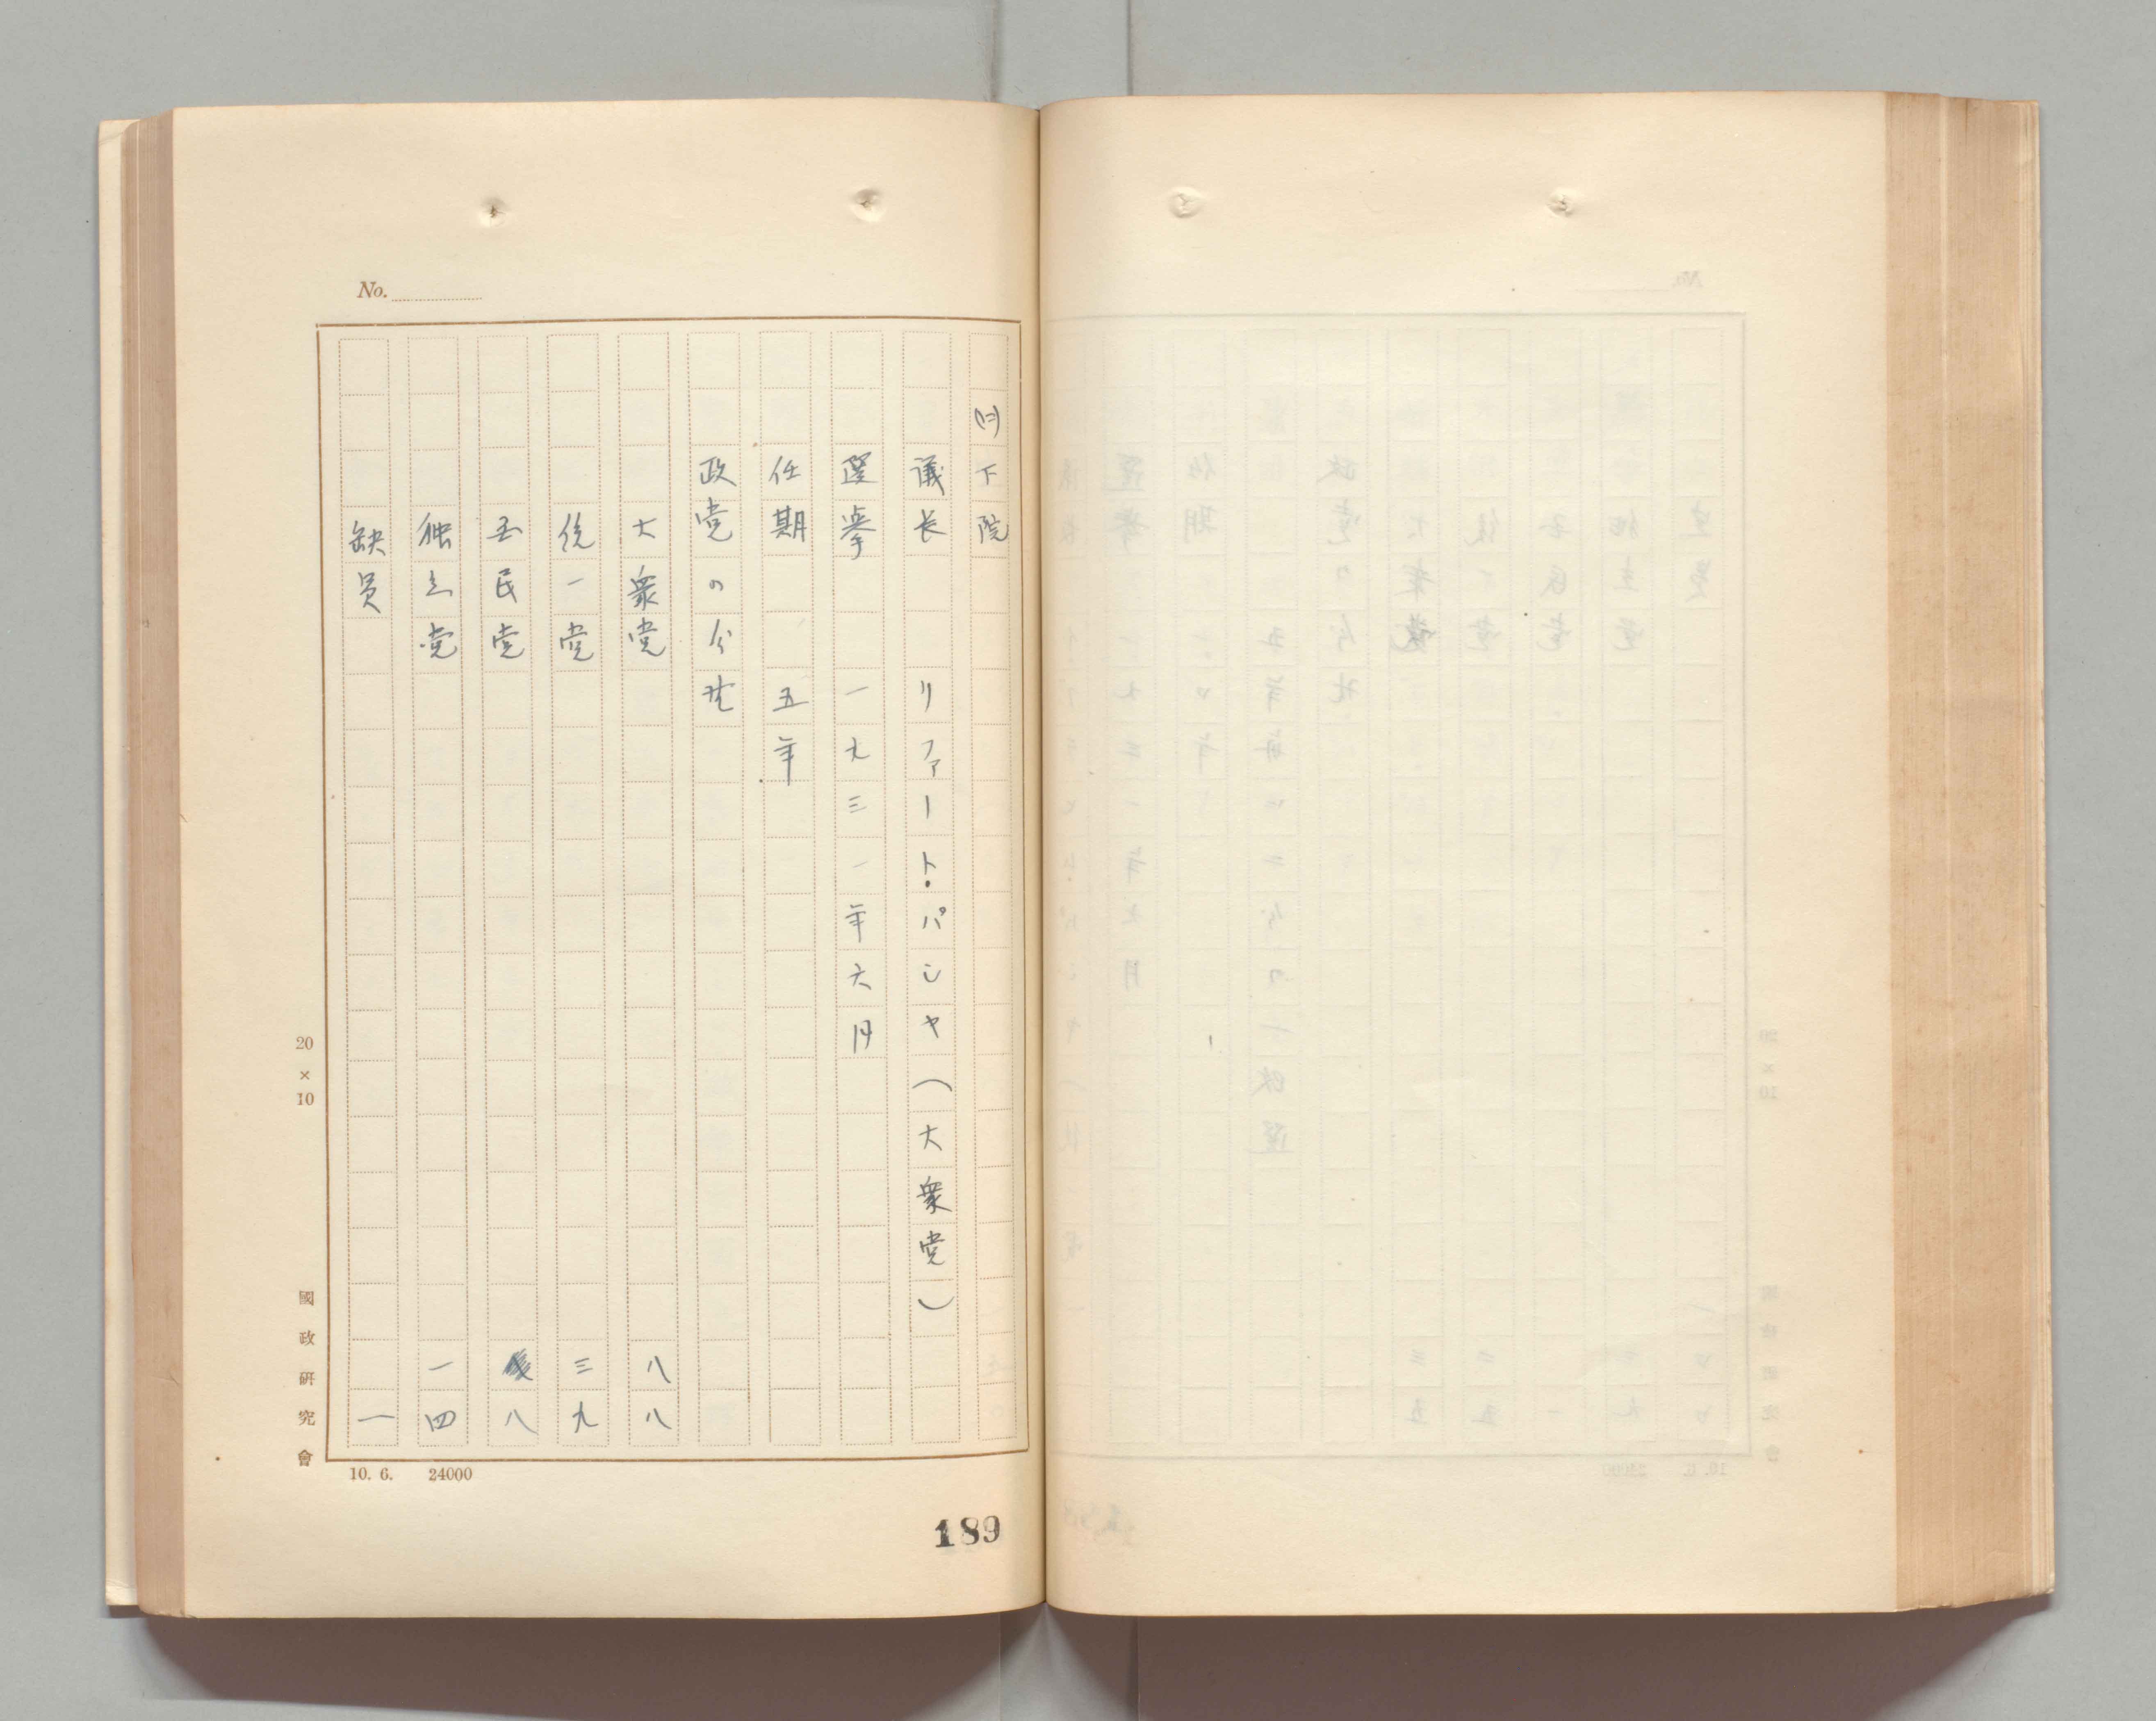 No.
(ロ)下院
議長 リファート・パシャ(大衆党)
選挙 一九三一年六月
任期 五年
政党の分野
大衆党 八八
統一党 三九
国民党 八
独立党 一四
缺員 一
20×10
國政研究會
10. 6. 24000
189